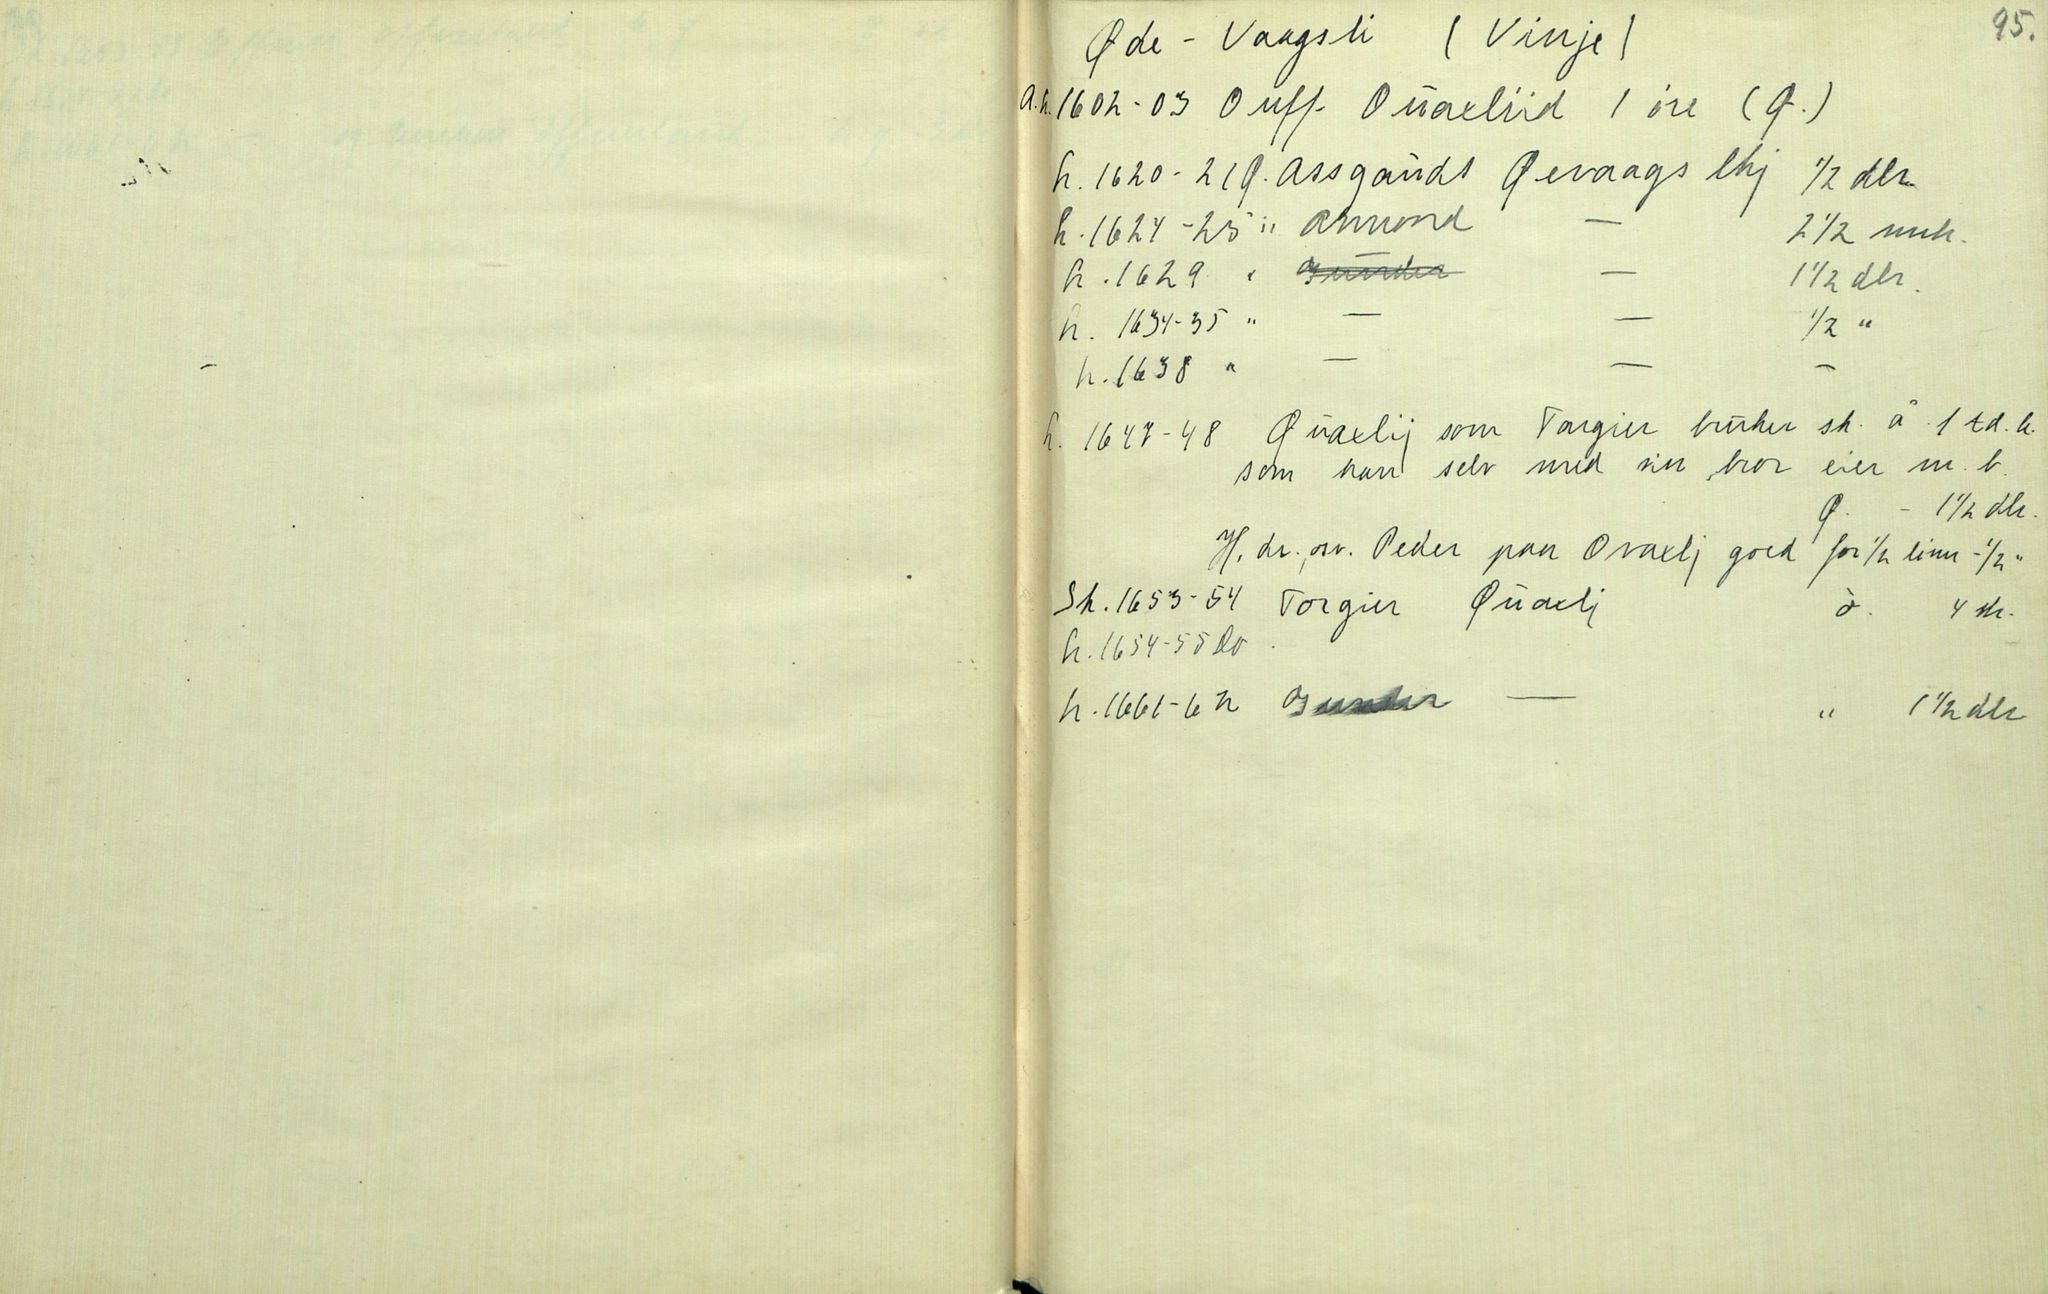 95.
Øde - Vaagsli (Vinje)
a.h. 1602-03 Ouff Oüaxliid 1 öre (Ø.)
h. 1620-21 Ø. Assgaüdt Øevaags lhj 1/2 dlr
h. 1624-25 " Amund — 2 1/2 mrk.
h. 1629 " Gunder — 1 1/2 dlr.
h. 1634-35 " — — 1/2 "
h. 1638 " — — —
h. 1647-48 Øüaxlij som Torgier brüker sk. á 1 td. h.
som han selv med sin bror eier m. b.
Ø. - 1 1/2 dlr.
H. dr. Peder paa Ovaxlj goed for 1/2 - 1/2 "
Sk. 1653-54 Torgier Øüaxlj ö. 4 sk.
h. 1654-55 Do.
h. 1661-62 Gunder — " 1 1/2 dlr